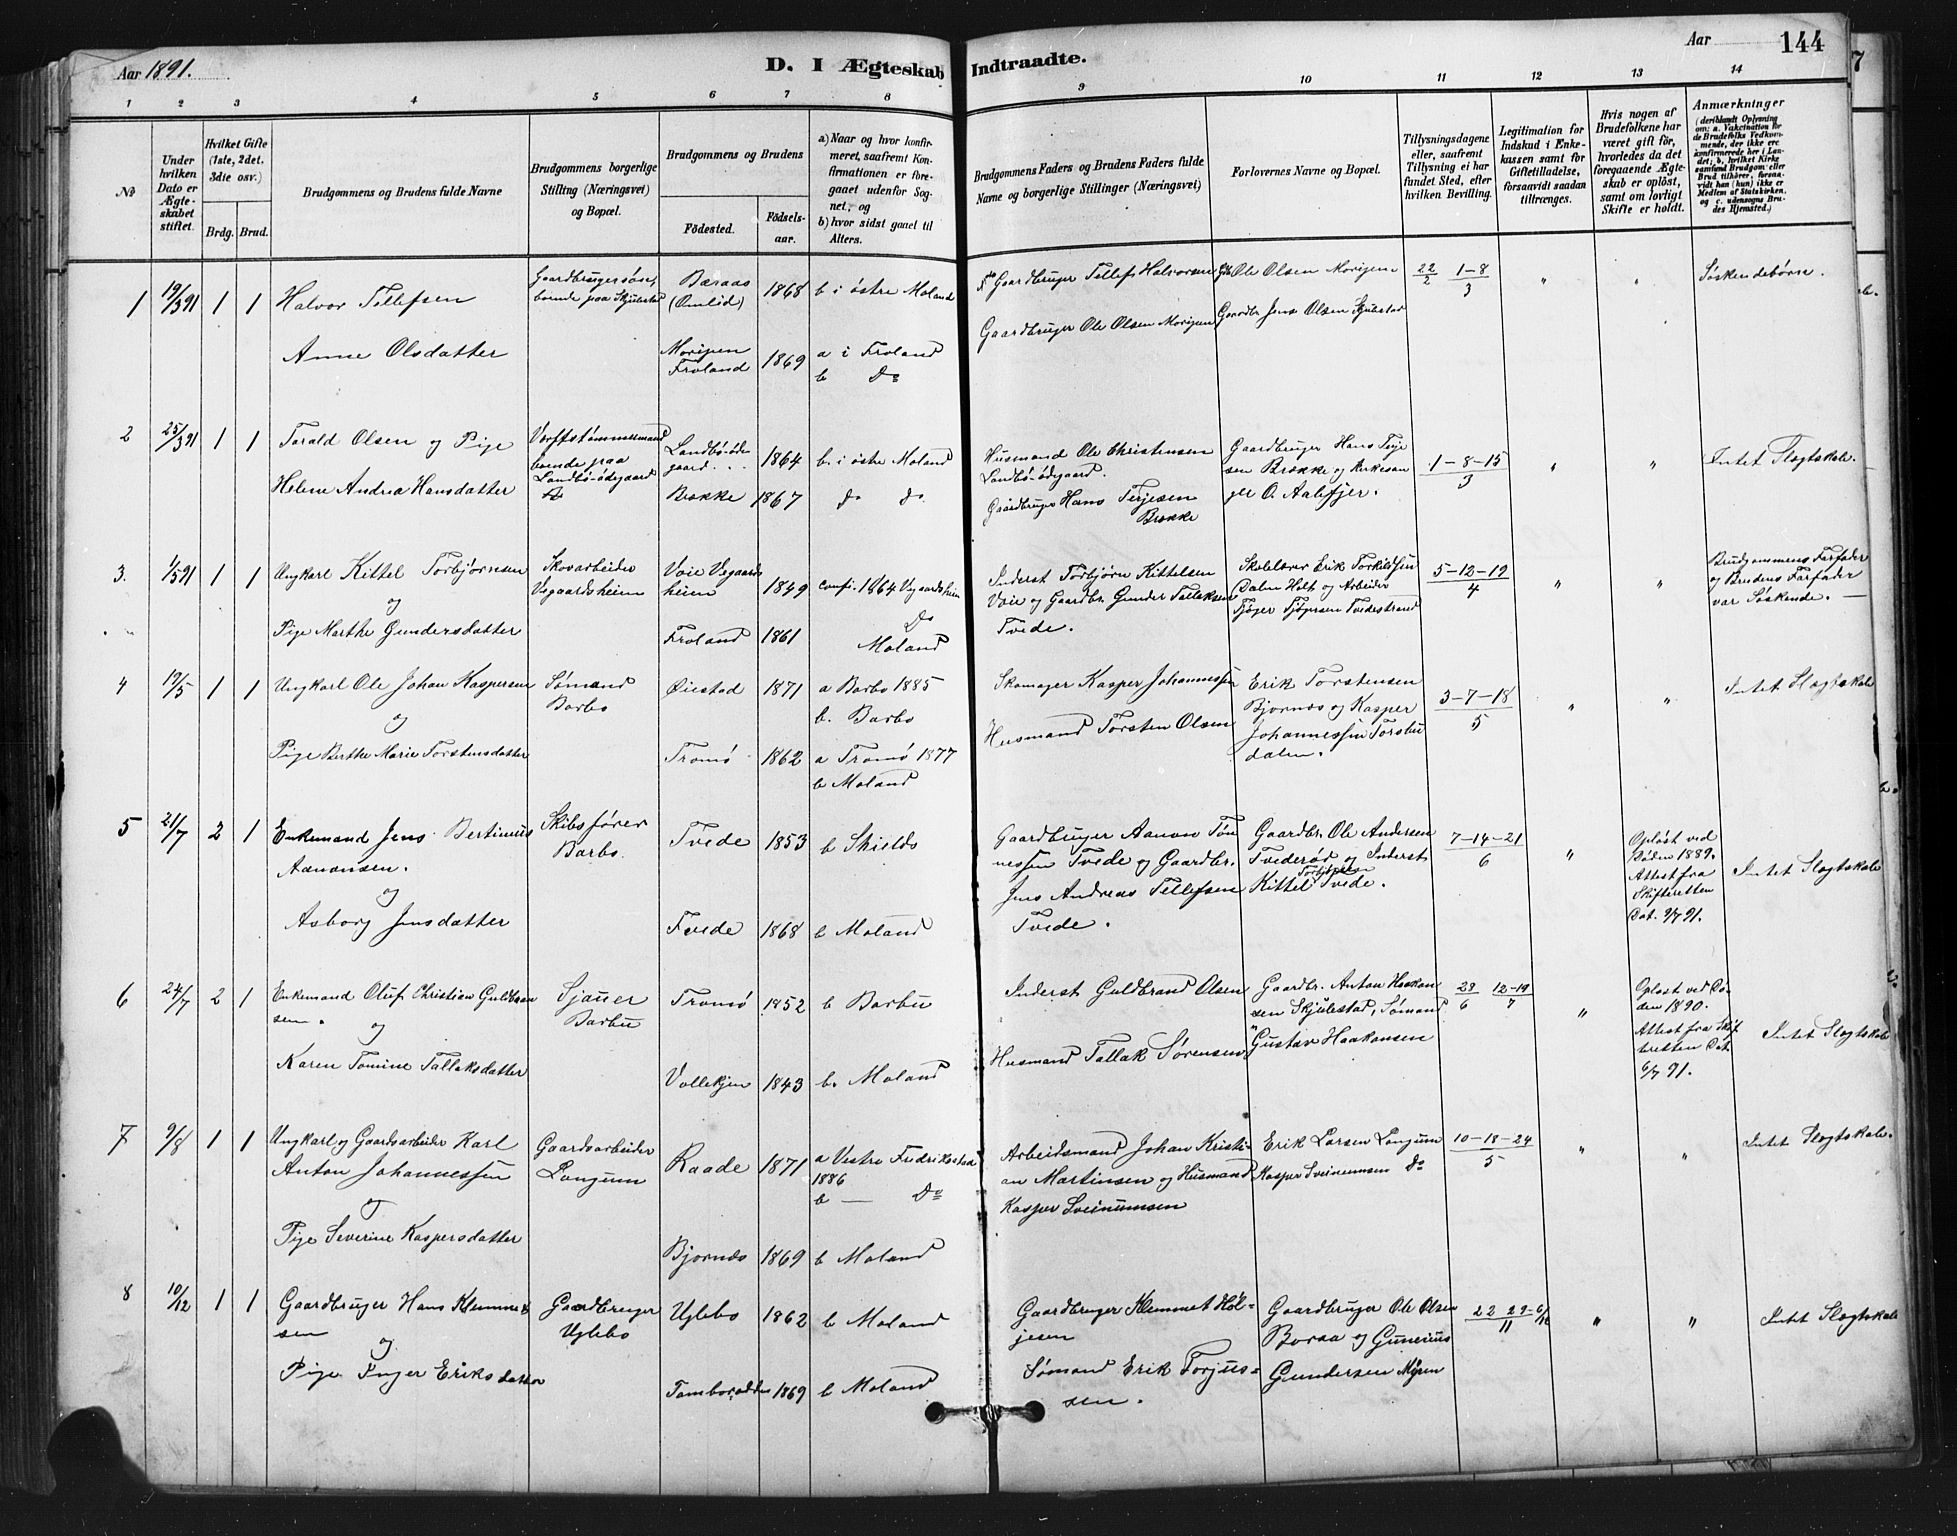 Aar 1891.
D. I Ægteskab Indtraadte.
Aar
144
7
1 2 3 4 5 6 7 8 9 10 11 12 13 14
No
Under hvilken Dato er Ægteskabet stiftet.
Hvilket Gifte (1ste, 2det. 3die osv.)
Brdg. Brud.
Brudgommens og Brudens fulde Navne
Brudgommens borgerlige Stilling (Næringsvei) og Bopæl.
Brudgommens og Brudens
Födested.
Födselsaar.
a) Naar og hvor konfirmeret, saafremt Konfirmationen er foregaaet udenfor Sognet, og
b) hvor sidst gaaet til Alters.
Brudgommens Faders og Brudens Faders fulde Navne og borgerlige Stillinger (Næringsvei)
Forlovernes Navne og Bopæl.
Tillysningsdagene eller, saafremt Tillysning ei har fundet Sted, efter hvilken Bevilling.
Legitimation for Indskud i Enkekassen samt for Giftetilladelse, forsaavidt saadan tiltrænges.
Hvis nogen af Brudefolkene har været gift för, hvorledes da det foregaaende Ægteskab er oplöst, samt om lovligt Skifte er holdt.
Anmærkninger (deriblandt Oplysning om: a. Vakcination for de Brudefolks Vedkommende, der ikke ere konfirmerede her i Landet; b. hvilket Kirkesamfund Brudgom eller Brud tilhörer, forsaavidt han (hun) ikke er Medlem af Statskirken, og c. udensogns Brudes Hjemsted.)
1 19/3 91 1 1 Halvor Tellefsen Gaardbrugersøn, boende paa Skjulestad Baraas (Omlid) 1868 b i østre Moland Gaardbruger Tellef Halvorsen Gbr Ole Olsen Moripen 22/2 1-8/3 " " Søskendebørn.
Anne Olsdatter Moripen Froland 1869 a i Froland b Do Gaardbruger Ole Olsen Moripen Gaardbr. Jens Olsen Skjulestad
2 25/3 91 1 1 Tarald Olsen og Pige Værftstømmermand boende paa Landbö-ödegaard Landbö-öde gaard 1864 b. i østre Moland Husmand Ole Christensen Landbö-ödegaard. Gaardbruger Hans Terjesen Brække og Kirkesanger O. Aalefjer. 1-8-15/3 " " Intet Slægtskab.
Helene Andrea Hansdatter Brække 1867 do do Gaardbruger Hans Terjesen Brække
3. 1/5 91 1 1 Ungkarl Kittel Torbjørnsen Skovarbeider Vegaardsheim Voie Vegaardsheim 1849 conf. 1864 Vegaardsheim Do Inderst Torbjørn Kittelsen Voie og Gaardbr. Gunder Tallaksen Tvede. Skolelærer Erik Torkildsen Dalen Holt og Arbeider Tjøger Tjøgersen Tvedestrand 5-12-19/4 " " Brudgommens Farfader og Brudens Farfader var Søskende.
og
Pige Marthe Gundersdatter Froland 1861 Moland
4 17/5 1 1 Ungkarl Ole Johan Kaspersen Sømand Barbo Øiestad 1871 a Barbo 1885 b. Barbo Skomager Kasper Johannessen Erik Torstensen Bjornæs og Kasper Johannessen Torsbudalen. 3-7-18/5 " " Intet Slægtskab
og
Pige Berthe Marie Torstensdatter Tromø 1862 a Tromø 1877 b Moland Husmand Torsten Olsen
5 21/7 2 1 Enkemand Jens Bertinius Aanonsen. Skibsfører Barbo. Tvede 1853 b Shields Gaardbruger Aanon Tønnessen Tvede og Gaardbr. Jens Andreas Tellefsen Tvede. Gaardbr. Ole Andersen Tvederød og Inderst Kittel Torbjørnsen Tvede. 7-14-21/6 " Opløst ved Døden 1889. Attest fra Skifteretten Dat. 9/7 91. Intet Slægtskab
og
Asborg Jensdatter Tvede 1868 b Moland
6 24/7 2 1 Enkemand Oluf Christian Guldbransen. Sjauer Barbu Tromø 1852 b Barbu Inderst Guldbrand Olsen Gaardbr. Anton Haakonsen Skjulestad, Sømand Gustav Haakonsen 28/6 12-19/7 " Opløst ved Døden 1890. Attest fra Skifteretten Dat. 6/7 91. Intet Slægtskab
og
Karen Tomine Tallaksdatter Vollekjen 1843 b. Moland Husmand Tallak Sørensen
7 9/8 1 1 Ungkarl og Gaardsarbeider Karl Anton Johannessen Gaardsarbeider Longum Raade 1871 a Vestre Fredrikstad 1886 b — Do Arbeidsmand Johan Kristian Martinsen og Husmand Kasper Sveinumsen Erik Larsen Longum Kasper Sveinumsen Do 10-18-24/5 " " Intet Slægtskab.
og
Pige Severine Kaspersdatter Bjornæs 1869 b Moland
8 10/12 1 1 Gaardbruger Hans Klemmetsen Gaardbruger Uglebo Uglebo 1862 b Moland Gaardbruger Klemmet Høljesen Gaardbruger Ole Olsen Boraa og Gunerius Gundersen Myren 22 29-6/12 11 " " Intet Slægtskab
og
Pige Inger Eriksdatter 1869 b Moland Sømand Erik Torjussen.